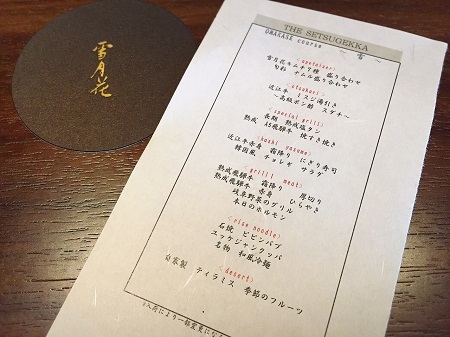 雪月花
THE SETSUGEKKA
OMAKASE course
雪
<appetizer>
雪月花キムチ7種 盛り合わせ
旬彩 ナムル盛り合わせ
<otsukuri>
近江牛 イスジ湯引き
～高級ポン酢 スダチ～
<special grill>
長期 熟成塩タン
熟成 A5飛騨牛 焼すき焼き
<hashi yasume>
近江牛赤身 霜降り にぎり寿司
韓国風 チョレギ サラダ
<grill meat>
熟成飛騨牛 霜降り 厚切り
熟成飛騨牛 赤身 ひらやき
岐阜野菜のグリル
本日のホルモン
<rise noodle>
石焼 ビビンバブ
ユッケジャンクッパ
名物 和風冷麺
<desert>
自家製 ティラミス 季節のフルーツ
※入荷により一部変更にな